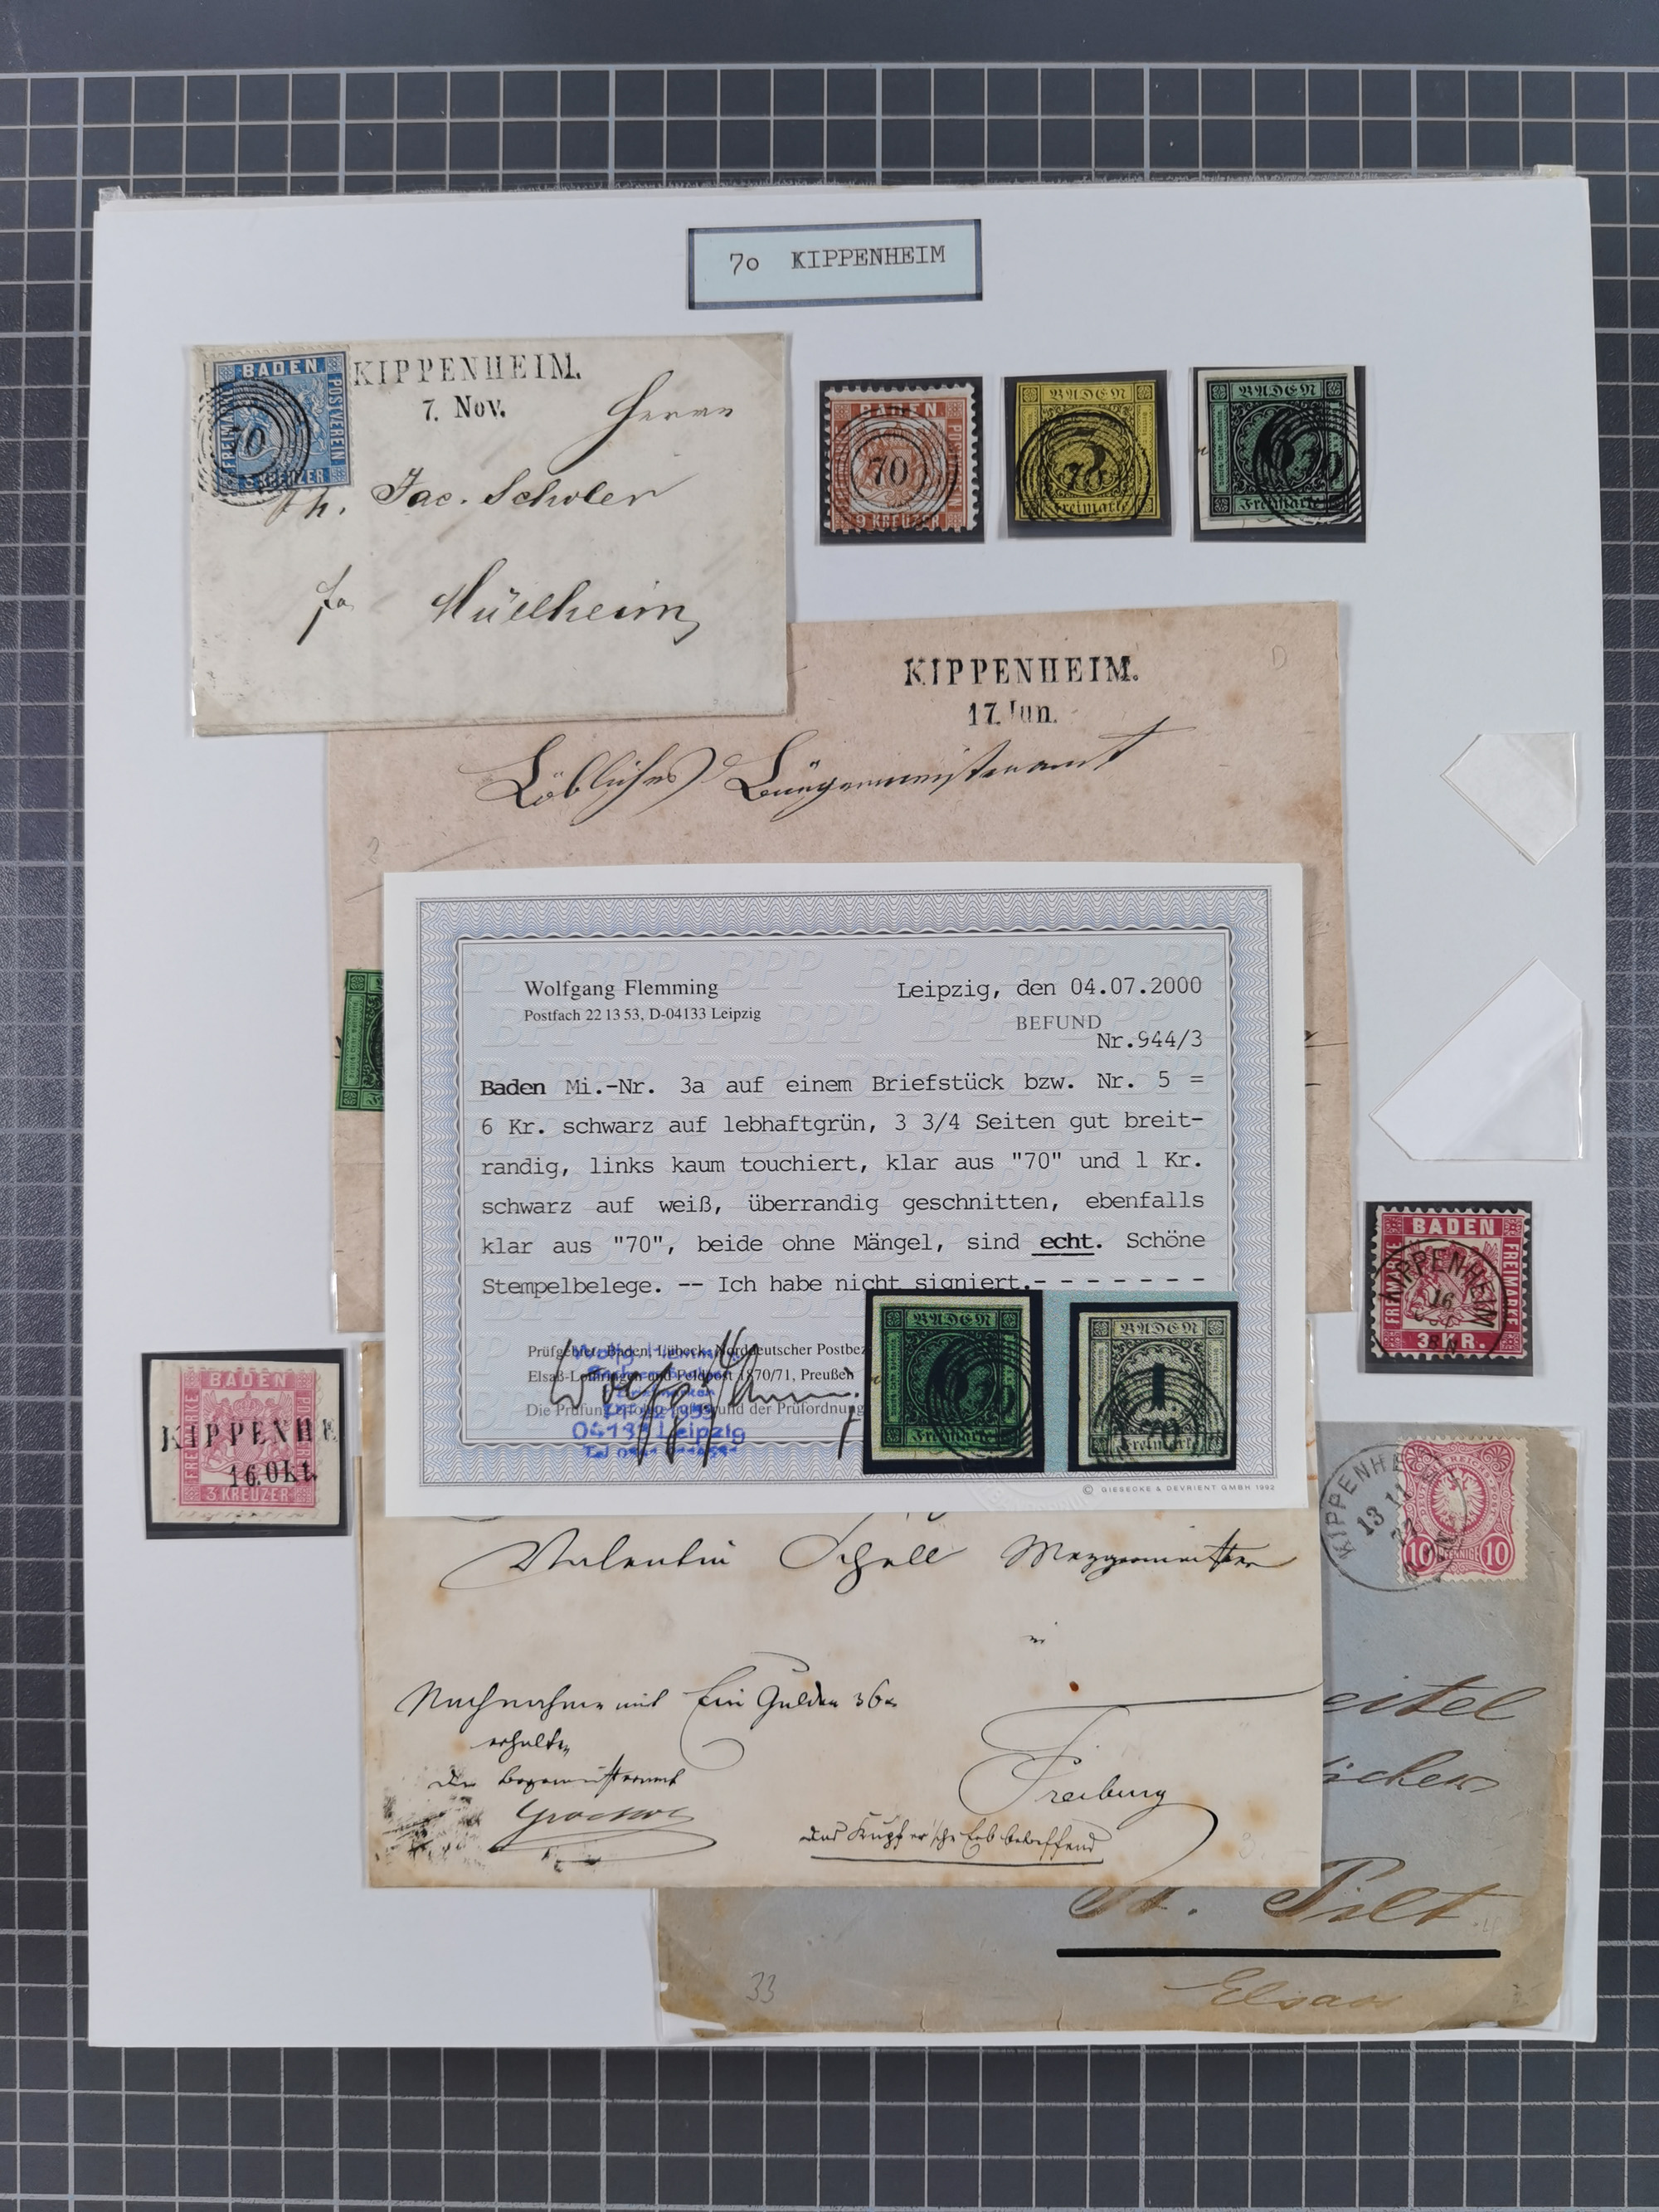 70 KIPPENHEIM
BADEN
POSTVEREIN
FREIMARKE
3 KREUZER
70
KIPPENHEIM.
7. Nov.
Herrn
Jac. Scholer
Müllheim
BADEN
70
9 KREUZER
BADEN
3
70
Freimarke
BADEN
6
70
Freimarke
KIPPENHEIM.
17. Jun.
D
Löbliches Bürgermeisteramt
Wolfgang Flemming
Postfach 22 13 53, D-04133 Leipzig
Leipzig, den 04.07.2000
BEFUND
Nr.944/3
Baden Mi.-Nr. 3a auf einem Briefstück bzw. Nr. 5 =
6 Kr. schwarz auf lebhaftgrün, 3 3/4 Seiten gut breit-
randig, links kaum touchiert, klar aus "70" und 1 Kr.
schwarz auf weiß, überrandig geschnitten, ebenfalls
klar aus "70", beide ohne Mängel, sind echt. Schöne
Stempelbelege. -- Ich habe nicht signiert.- - - - - - -
Prüfgebiet: Baden, Lübeck, Norddeutscher Postbez
Elsaß-Lothringen und Feldpost 1870/71, Preußen
Die Prüfung erfolgte aufgrund der Prüfordnung
04133 Leipzig
BADEN
6
Freimarke
BADEN
1
70
Freimarke
© GIESECKE & DEVRIENT GMBH 1992
BADEN
FREIMARKE
FREIMARKE
KIPPENHEIM
16
3 KR.
BADEN
FREIMARKE
KIPPENHE
16. Okt.
3 KREUZER
KIPPENHE
13 11
10 PFENNIGE 10
Valentin Schell Metzgermeister
in
Nachnahme mit Ein Gulden 36x
erhalten
das Bürgermeisteramt
Freiburg
das Kupfer'sche Erb betreffend
eitel
St. Pilt
Elsass
33